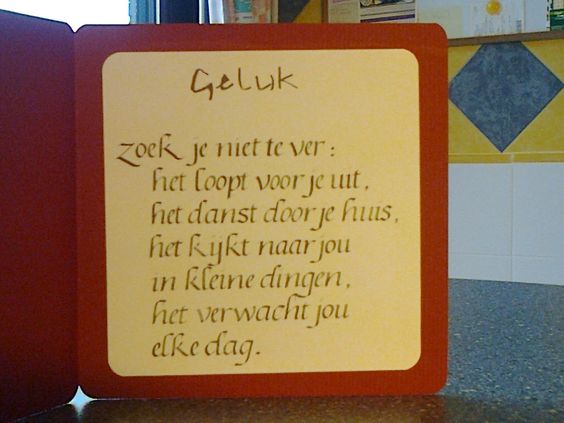 Geluk
zoek je niet te ver:
het loopt voor je uit,
het danst door je huis,
het kijkt naar jou
in kleine dingen,
het verwacht jou
elke dag.